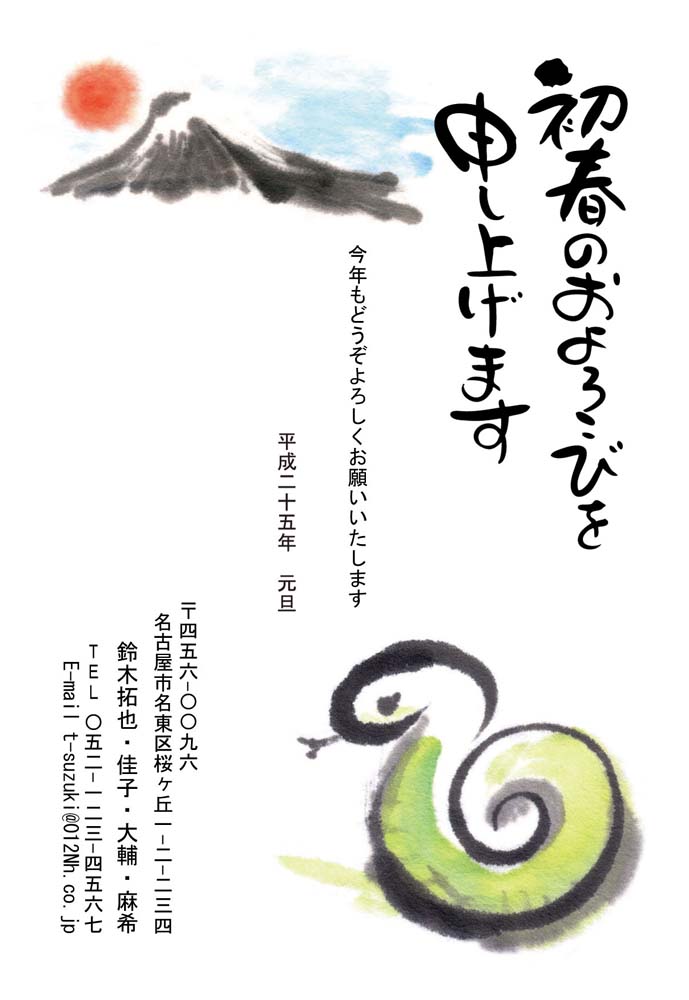 初春のおよろこびを
申し上げます
今年もどうぞよろしくお願いいたします
平成二十五年　元旦
〒四五六-〇〇九六
名古屋市名東区桜ヶ丘一-二-二三四
鈴木拓也・佳子・大輔・麻希
TEL 〇五二-一二三-四五六七
E-mail t-suzuki@012Nh.co.jp